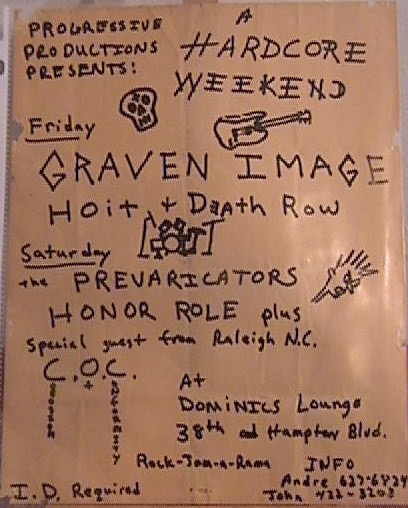 PROGRESSIVE
PRODUCTIONS
PRESENTS:
A
HARDCORE
WEEKEND
Friday
GRAVEN IMAGE
Hoit + Death Row
Saturday
the PREVARICATORS
HONOR ROLE plus
special guest from Raleigh N.C.
C.O.C.
At
DOMINICS Lounge
38th and Hampton Blvd.
Rock-Jam-a-Rama
INFO
Andre
John
I.D. Required